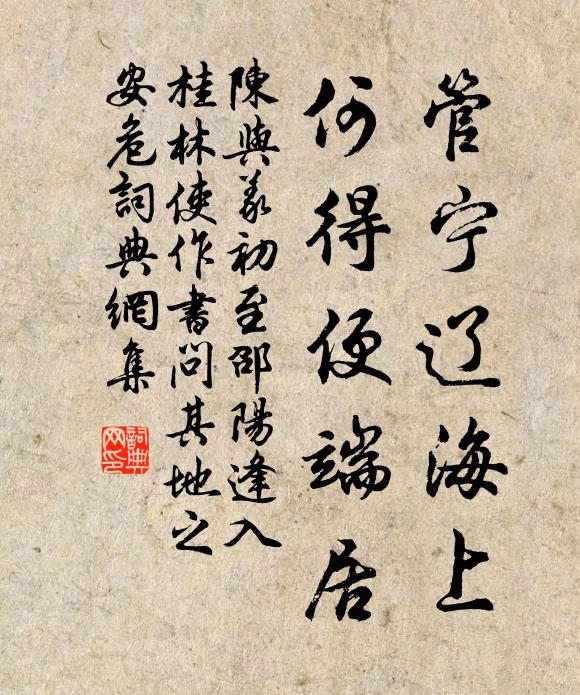 管宁辽海上
何得便端居
陳與義初至邵陽逢入
桂林使作書問其地之
安危詞典網集
詞典网印